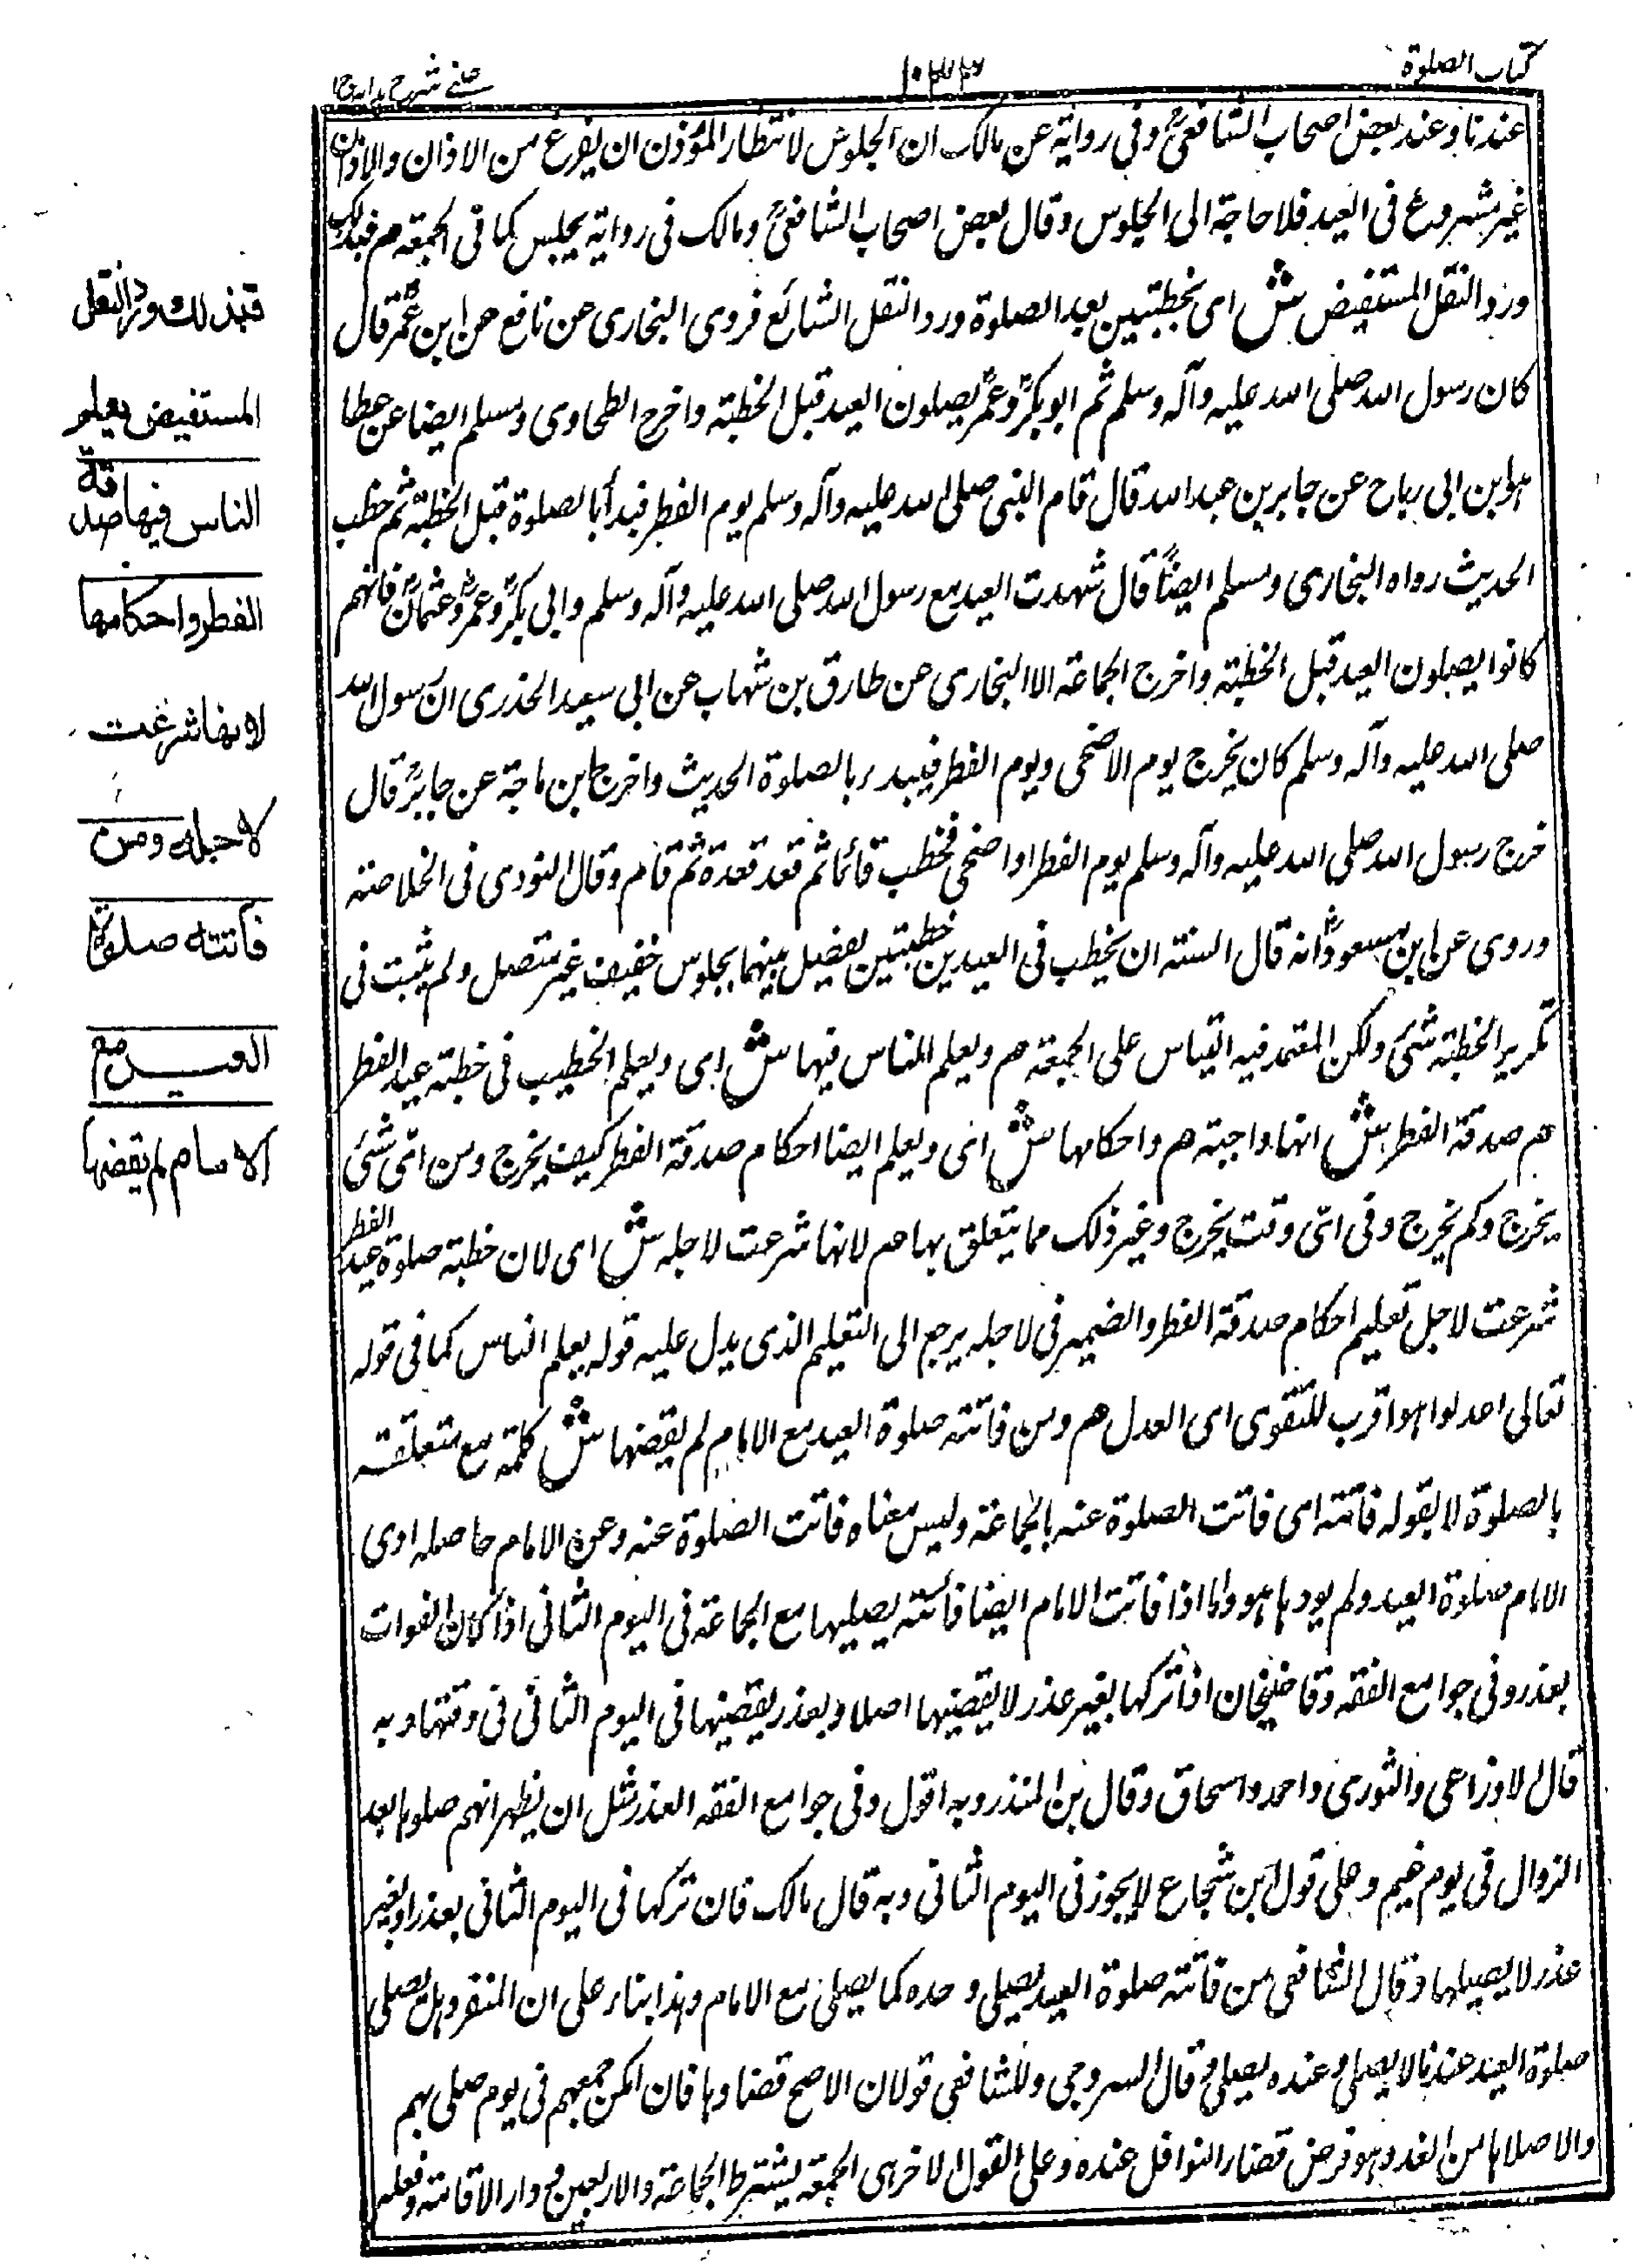 كتاب الصلوة
١٠٣٣
عيني شرح هداية ج١
عندنا وعند بعض اصحاب الشافعيؒ وفي رواية عن مالك ان الجلوس لانتظار المؤذن ان يفرغ من الاذان والاذان
غير مشروع فى العيد فلا حاجة الى الجلوس وقال بعض اصحاب الشافعيؒ ومالك فى رواية يجلس كما فى الجمعة هم فبذلك
ورد النقل المستفيض ش اى بخطبتين بعد الصلوة ورد النقل الشائع فروى البخارى عن نافع عن ابن عمرؓ قال
كان رسول الله صلى الله عليه وآله وسلم ثم ابو بكرؓ وعمرؓ يصلون العيد قبل الخطبة واخرج الطحاوى ومسلم ايضا عن عطا
هو ابن ابى رباح عن جابر بن عبد الله قال قام النبى صلى الله عليه وآله وسلم يوم الفطر فبدأ بالصلوة قبل الخطبة ثم خطب
الحديث رواه البخارى ومسلم ايضاً قال شهدت العيد مع رسول الله صلى الله عليه وآله وسلم وابى بكرؓ وعمرؓ وعثمانؓ فانهم
كانوا يصلون العيد قبل الخطبة واخرج الجماعة الا البخارى عن طارق بن شهاب عن ابى سعيد الخدرى ان رسول الله
صلى الله عليه وآله وسلم كان يخرج يوم الاضحى ويوم الفطر فيبدء بالصلوة الحديث واخرج ابن ماجة عن جابرؓ قال
خرج رسول الله صلى الله عليه وآله وسلم يوم الفطر او اضحى فخطب قائما ثم قعد قعدة ثم قام وقال النووى فى الخلاصة
وروى عن ابن مسعودؓ انه قال السنة ان يخطب فى العيدين خطبتين يفصل بينهما بجلوس خفيف غير متصل ولم يثبت فى
تكرير الخطبة شئ ولكن المعتمد فيه القياس على الجمعة هم ويعلم الناس فيها ش اى ويعلم الخطيب فى خطبة عيد الفطر
هم صدقة الفطر ش انها واجبة هم واحكامها ش اى ويعلم ايضا احكام صدقة الفطر كيف يخرج ومن اىّ شئ
يخرج وكم يخرج وفى اىّ وقت يخرج وغير ذلك مما يتعلق بها هم لانها شرعت لاجله ش اى لان خطبة صلوة عيد الفطر
شرعت لاجل تعليم احكام صدقة الفطر والضمير فى لاجله يرجع الى التعليم الذى يدل عليه قوله يعلم الناس كما فى قوله
تعالى اعدلوا هو اقرب للتقوى اى العدل هم ومن فاتته صلوة العيد مع الامام لم يقضها ش كلمة مع متعلقة
بالصلوة لا بقوله فاتته اى فاتت الصلوة عنه بالجماعة وليس معناه فاتت الصلوة عنه وعن الامام حاصله ادى
الامام صلوة العيد ولم يودها هو واما اذا فاتت الامام ايضا فائتة يصليها مع الجماعة فى اليوم الثانى اذا كان الفوات
بعذر وفى جوامع الفقه وقاضيخان اذا تركها بغير عذر لا يقضيها اصلا وبعذر يقضيها فى اليوم الثانى فى وقتها وبه
قال الاوزاعى والثورى واحمد واسحاق وقال ابن المنذر وبه اقول وفى جوامع الفقه العذر مثل ان يظهر انهم صلوها بعد
الزوال فى يوم غيم وعلى قول ابن شجاع لا يجوز فى اليوم الثانى وبه قال مالك فان تركها فى اليوم الثانى بعذر او بغير
عذر لا يصليها وقال الشافعى من فاتته صلوة العيد يصلى وحده كما يصلى مع الامام وهذا بناء على ان المنفرد هل يصلى
صلوة العيد عندنا لا يصلى وعنده يصلى وقال السروجى وللشافعى قولان الاصح قضاوها فان امكن جمعهم فى يوم صلى بهم
والا صلاها من الغد وهو فرض قضاء النوافل عنده وعلى القول الاخر هى الجمعة يشترط الجماعة والاربعين ودار الاقامة وفعله
فبذلك ورد النقل
المستفيض يعلم
الناس فيها صدقة
الفطر واحكامها
لانها شرعت
لاجله ومن
فاتته صلوة
العيد مع
الامام لم يقضها